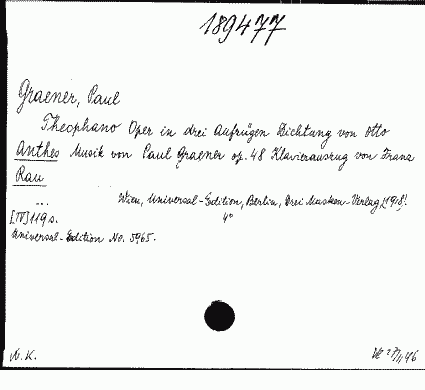 189477
Graener, Paul
Theophano Oper in drei Aufzügen Dichtung von Otto
Anthes Musik von Paul Graener op. 48 Klavierauszug von Franz
Rau
... Wien, Universal-Edition, Berlin, Drei Masken-Verlag, [1918].
[IV] 119 s. 4°
Universal-Edition No. 5965.
N. K.